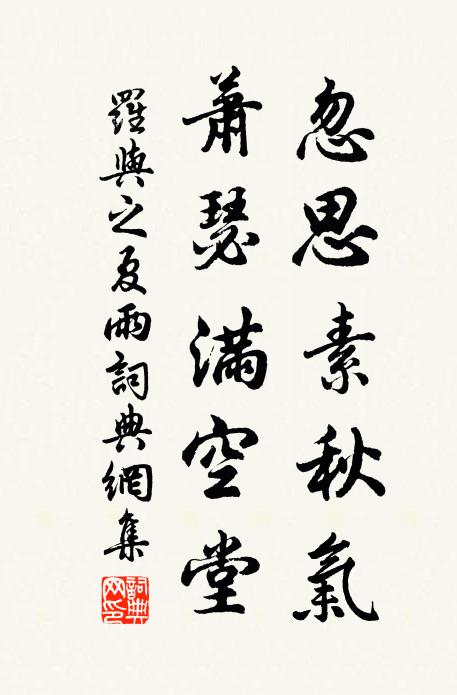 忽思素秋氣
蕭瑟滿空堂
羅與之夏雨詞典網集
詞典網印